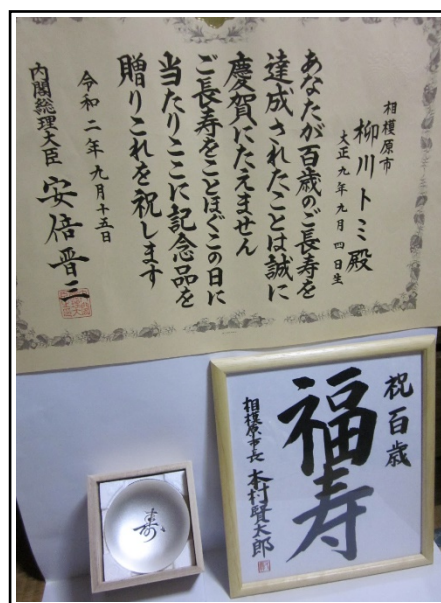 相模原市
柳川トミ殿
大正九年九月四日生
あなたが百歳のご長寿を
達成されたことは誠に
慶賀にたえません
ご長寿をことほぐこの日に
当たりここに記念品を
贈りこれを祝します
令和二年九月十五日
内閣総理大臣 安倍晋三
祝百歳
福寿
相模原市長 本村賢太郎
寿